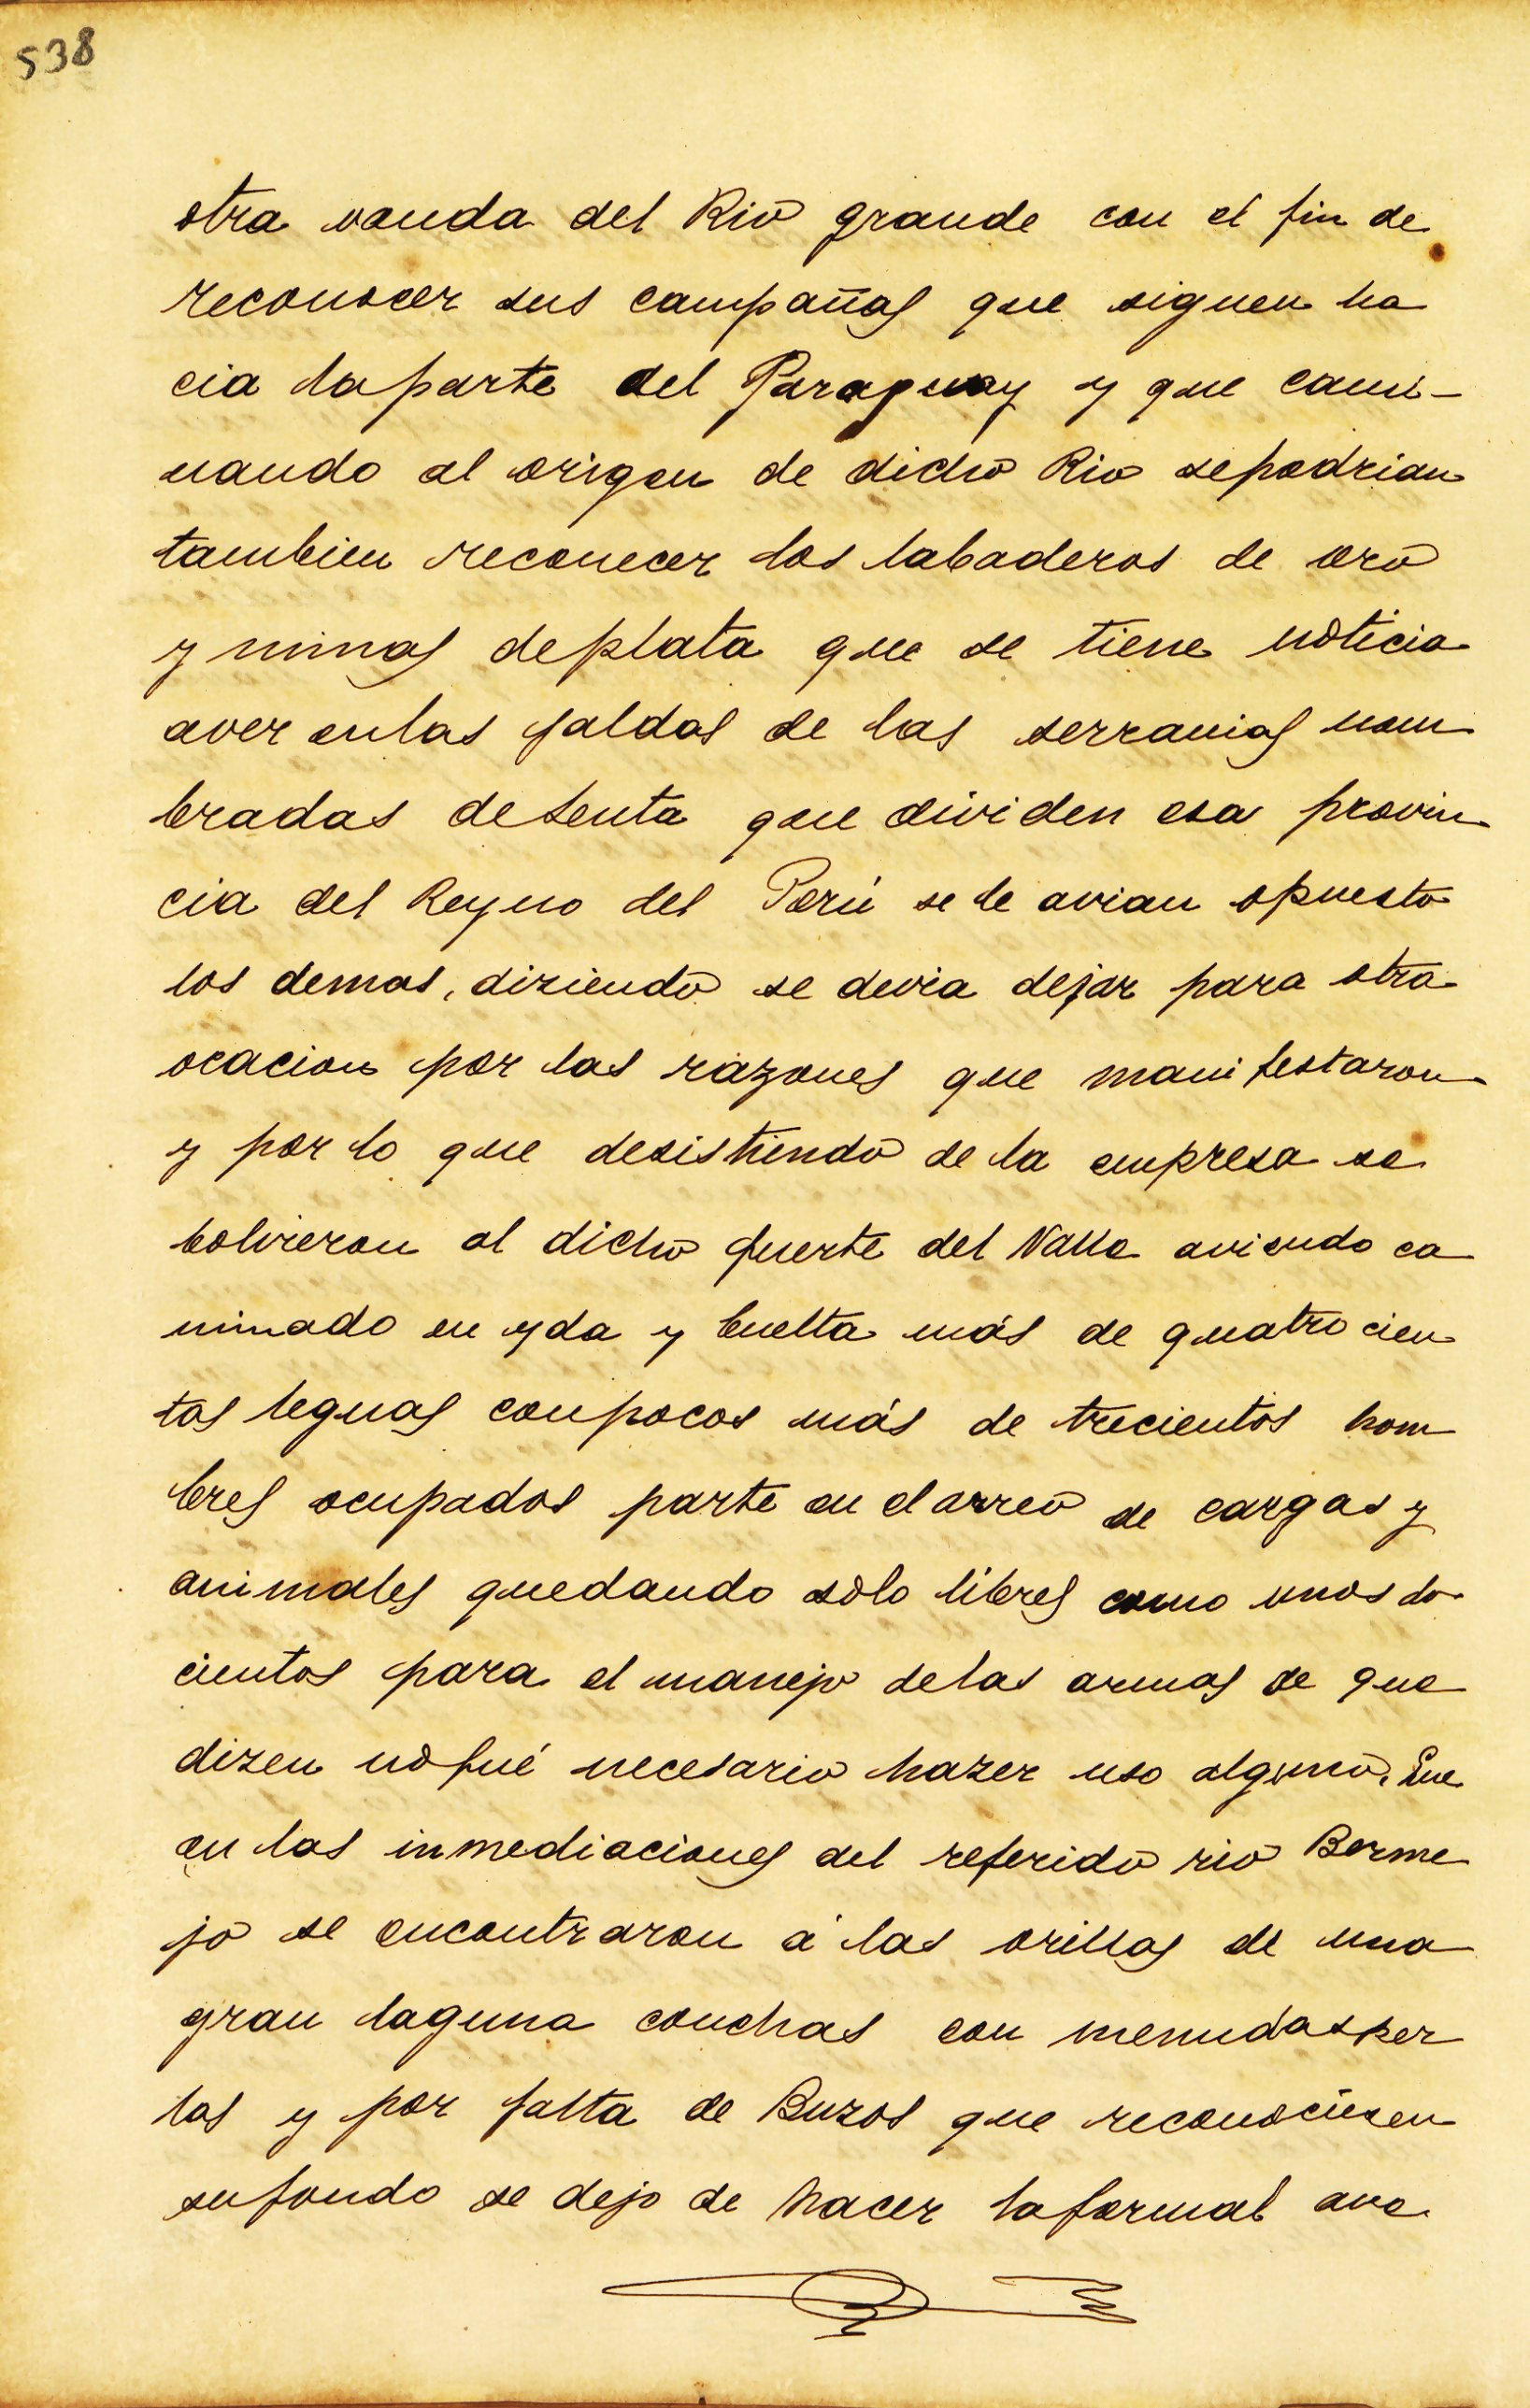 538
otra vanda del Rio grande con el fin de
reconocer sus campañas que siguen ha
cia laparte del Paraguay y que cami-
nando al origen de dicho Rio sepodrian
tambien reconecer los labaderos de oro
y minas deplata que se tiene noticia
aver enlas faldas de las serranias nom
bradas desenta que dividen esa provin
cia del Reyno del Perú se le avian opuesto
los demas, diziendo se devia dejar para otra
ocacion por las razones que manifestaron
y por lo que desistiendo de la empresa se
bolvieron al dicho fuerte del Valle aviendo ca
minado en yda y buelta más de quatrocien
tas leguas conpocos más de trecientos hom
bres ocupados parte en el arreo de cargas y
animales quedando solo libres como unos do
cientos para el manejo delas armas de que
dizen nofué necesario hazer uso alguno. Que
en las inmediaciones del referido rio Berme
jo se encontraron á las orillas de una
gran laguna conchas con menudasper
las y por falta de Buzos que reconociesen
sufondo se dejo de hacer laformal ave